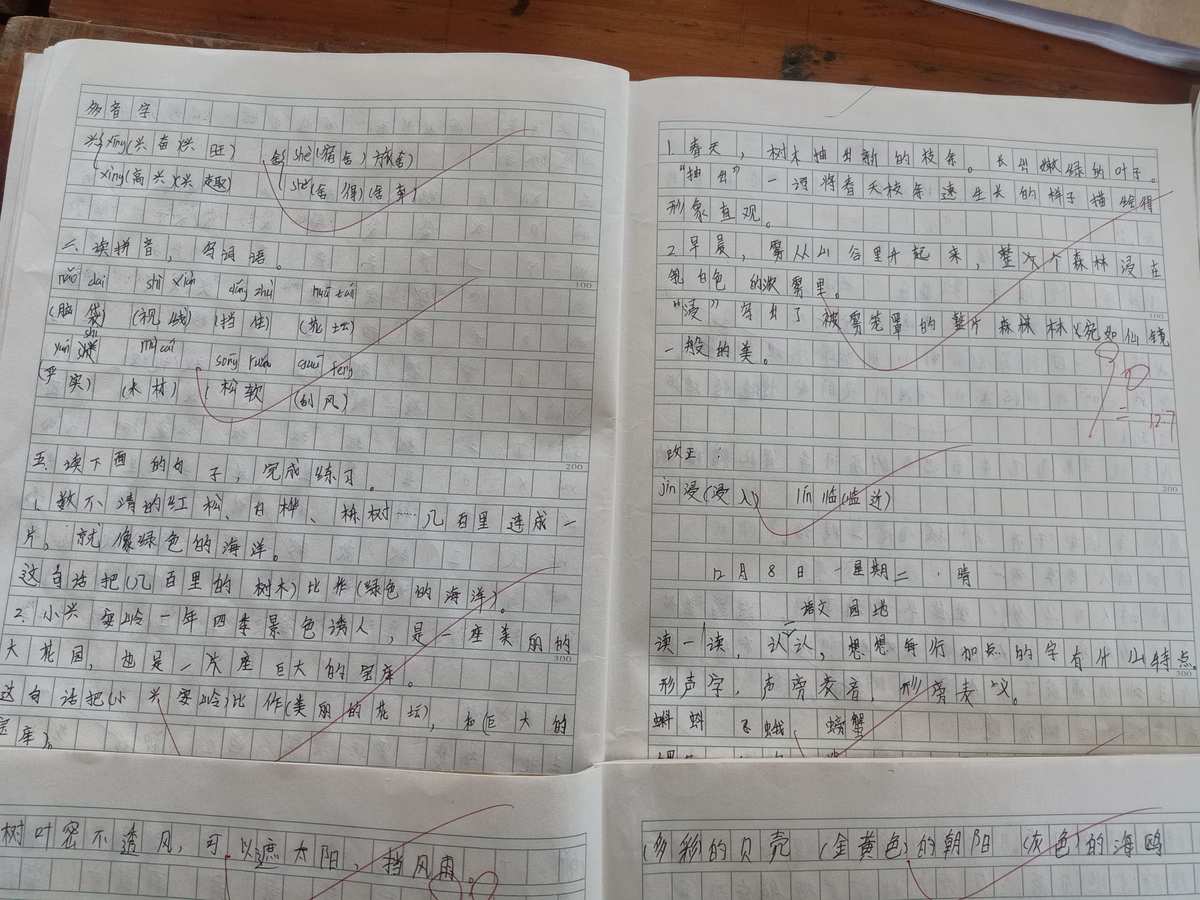 多音字
兴 xīng(兴奋)(兴旺) 舍 shè(宿舍)
xìng(高兴)(兴趣) shě(舍得)(舍弃)
三、读拼音，写词语。
nǎo dai shì xiàn dǎng zhù huā tán
(脑袋) (视线) (挡住) (花坛)
yán shi mù cái sōng ruǎn guā fēng
(严实) (木材) (松软) (刮风)
五、读下面的句子，完成练习。
1、数不清的红松、白桦、栎树……几百里连成一
片，就像绿色的海洋。
这句话把(几百里的树木)比作(绿色的海洋)。
2、小兴安岭一年四季景色诱人，是一座美丽的
大花园，也是一片座巨大的宝库。
这句话把(小兴安岭)比作(美丽的花坛)，和(巨大的
宝库)。
1.春天，树木抽出新的枝条。长出嫩绿的叶子。
"抽出"一词将春天枝条速生长的样子描绘得
形象直观。
2.早晨，雾从山谷里升起来，整个森林浸在
乳白色的浓雾里。
"浸"写出了被雾笼罩的整片森林宛如仙镜
一般的美。
改正：
jìn浸(浸入) lín临(临近)
12月8日 星期二 晴
语文园地
读一读，认认，想想每行加点的字有什么特点。
形声字，声旁表音，形旁表义。
蝌蚪 飞蛾 螃蟹
树叶密不透风，可以遮太阳，挡风雨。
(多彩的贝壳 (金黄色)的朝阳 (灰色)的海鸥